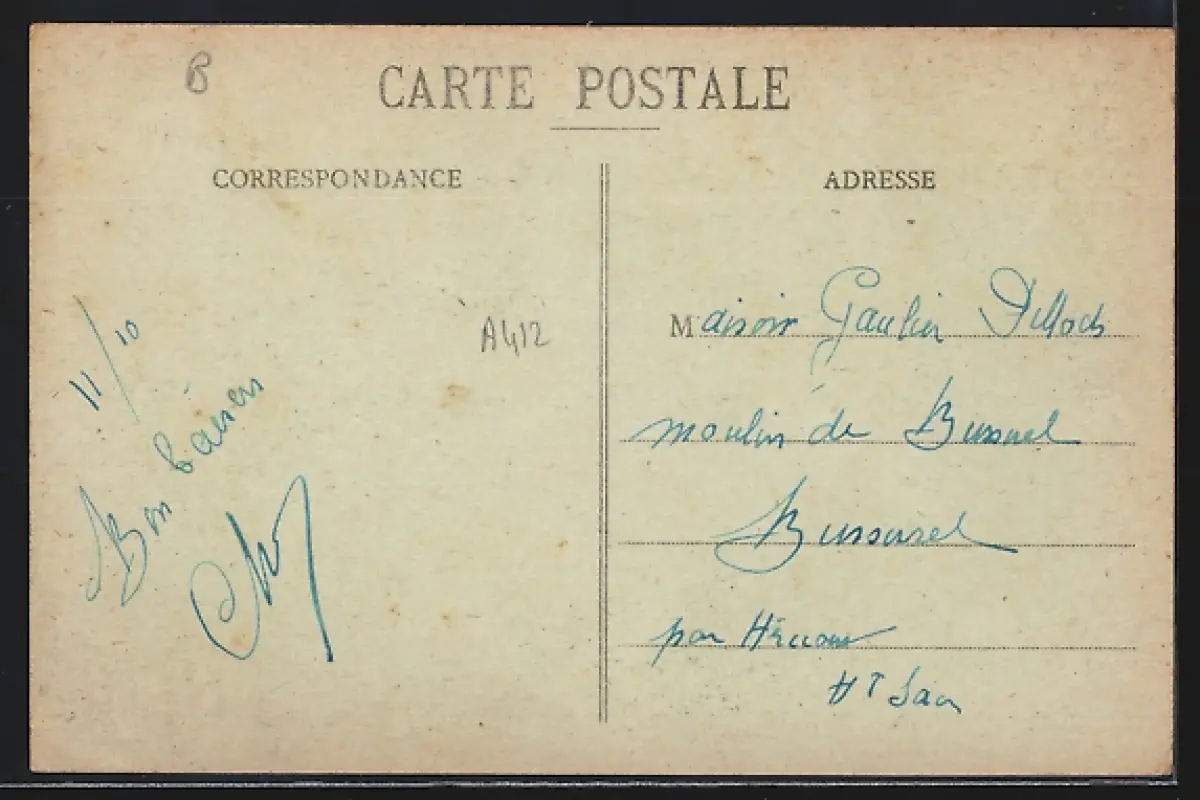 B
CARTE POSTALE
CORRESPONDANCE
ADRESSE
11/10
Bon baisers
A412
Maison Gaulier
moulin de Bussurel
Bussurel
par Héricourt
Hte Saon